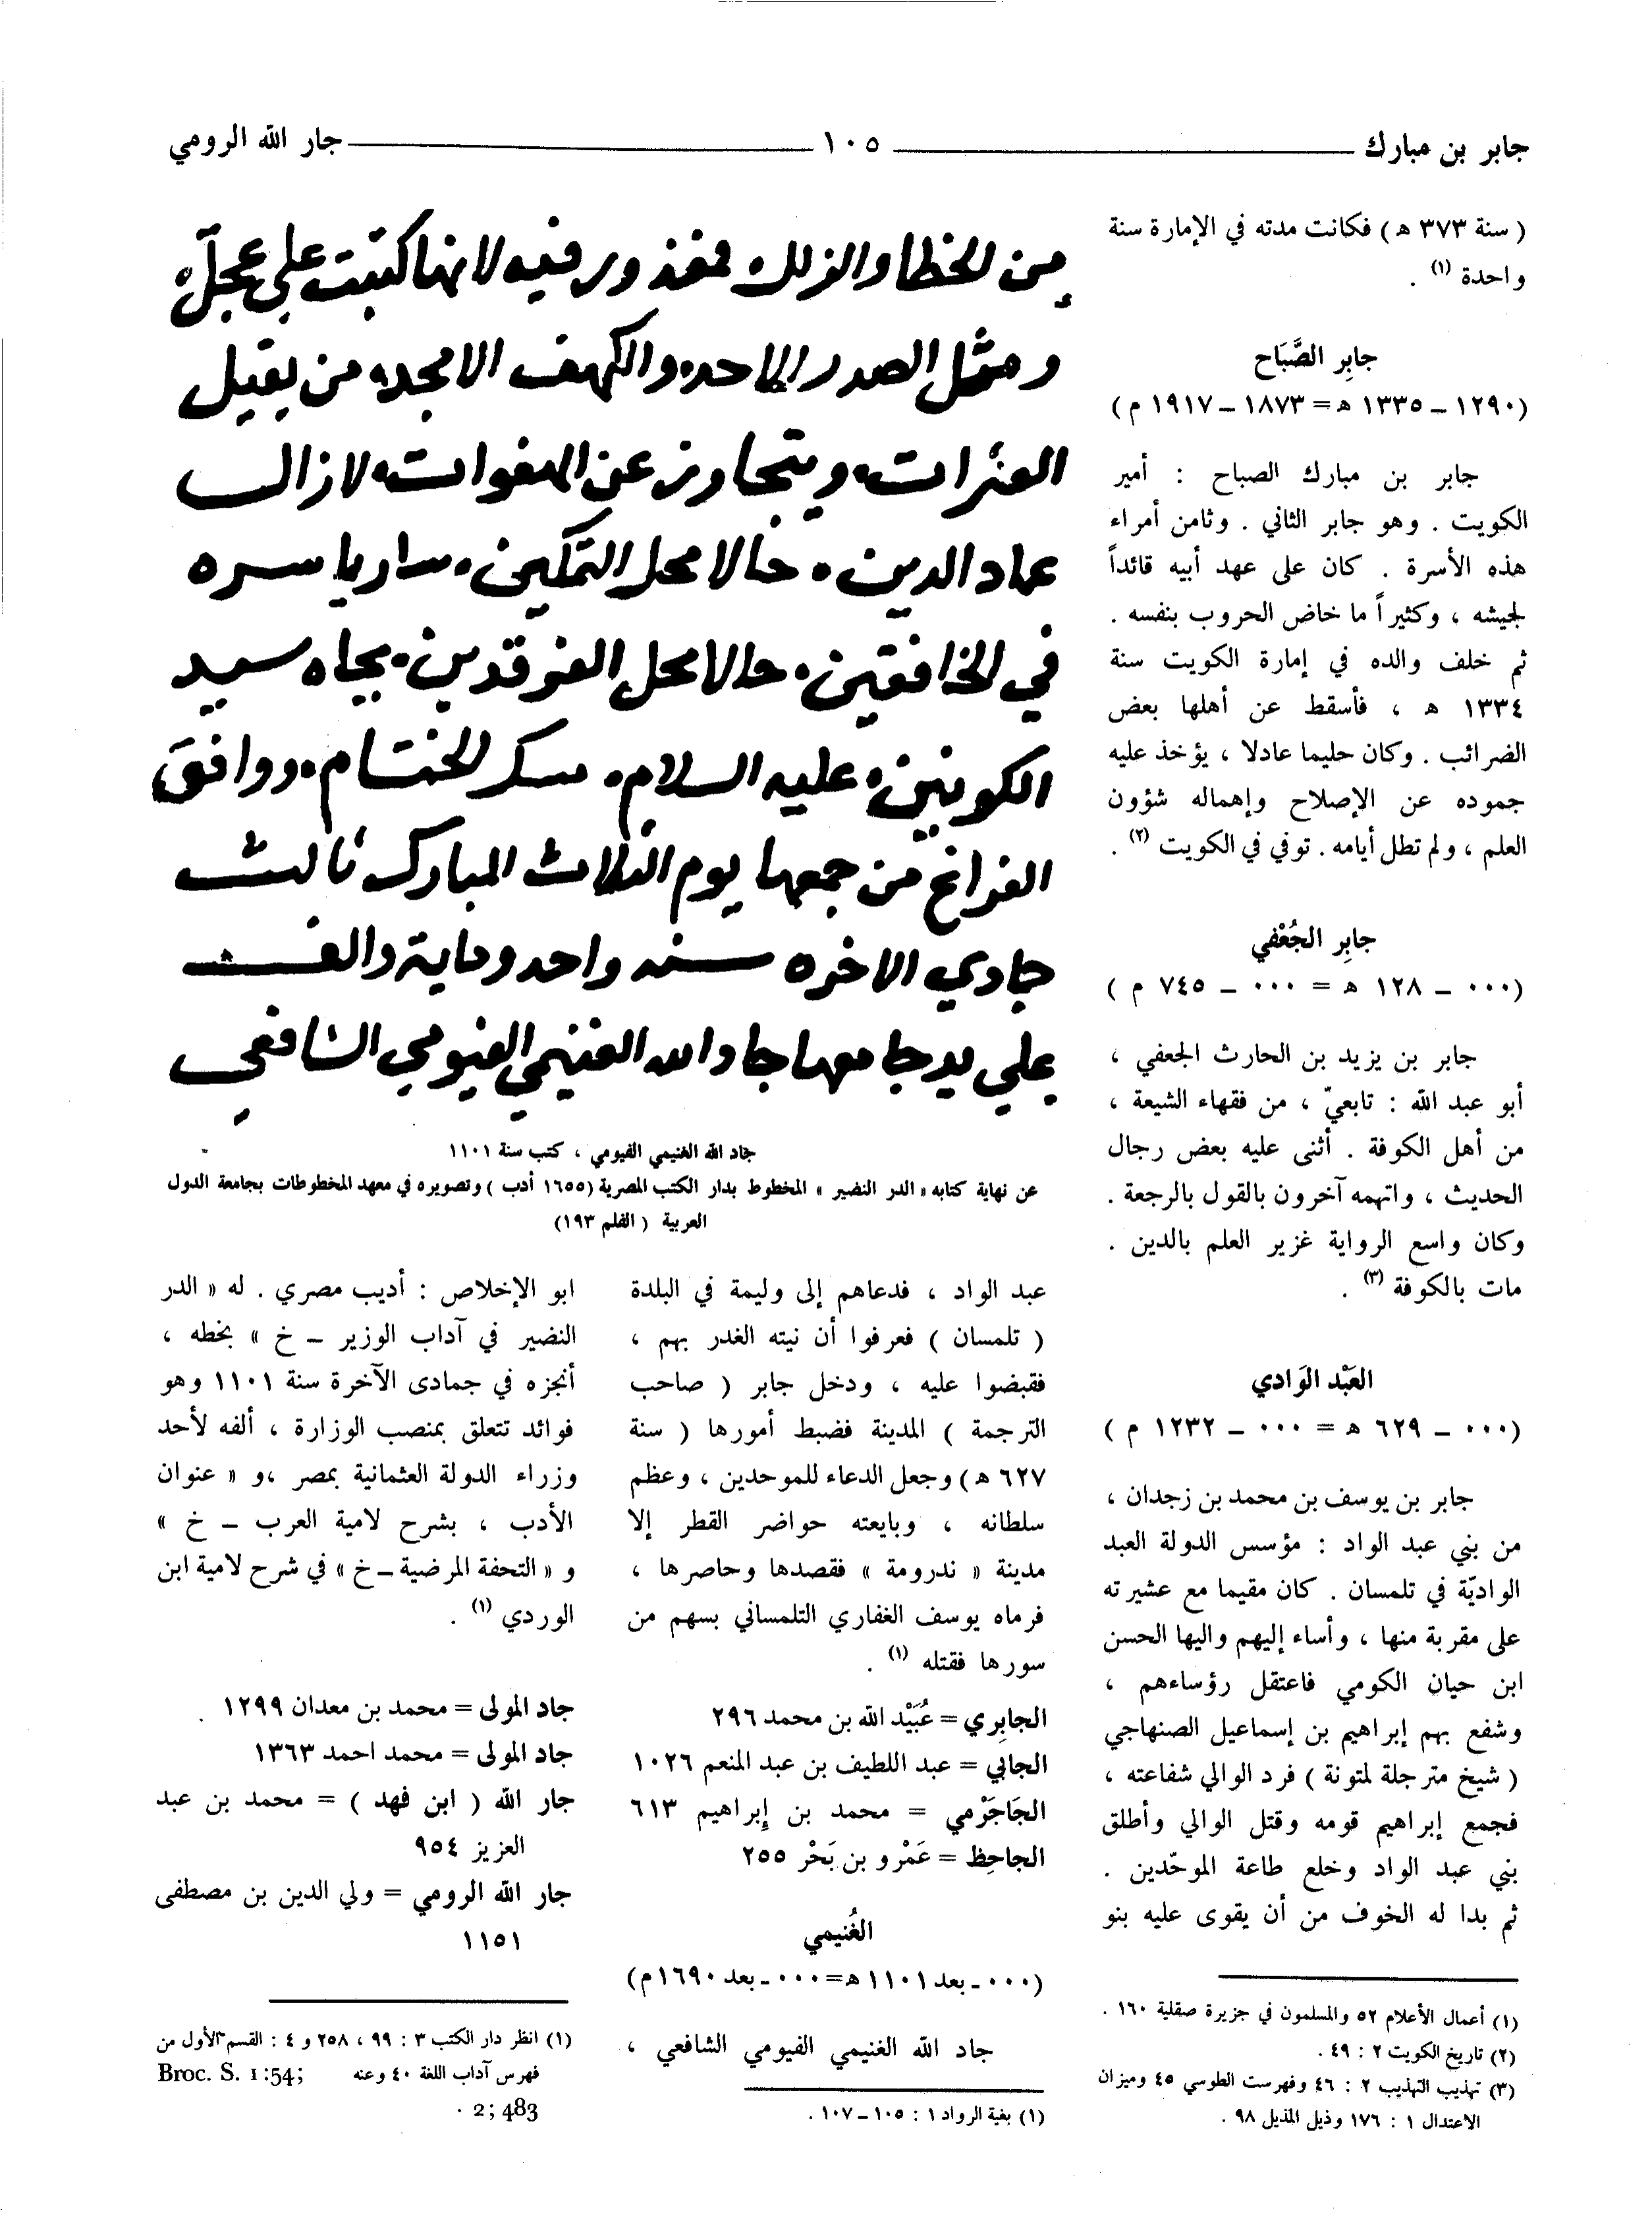 جابر بن مبارك ١٠٥ جار الله الرومي
( سنة ٣٧٣ هـ ) فكانت مدته في الإمارة سنة
واحدة (١) .
جابِر الصَّبَاح
(١٢٩٠ – ١٣٣٥ هـ = ١٨٧٣ – ١٩١٧ م )
جابر بن مبارك الصباح : أمير
الكويت . وهو جابر الثاني . وثامن أمراء
هذه الأسرة . كان على عهد أبيه قائداً
لجيشه ، وكثيراً ما خاض الحروب بنفسه .
ثم خلف والده في إمارة الكويت سنة
١٣٣٤ هـ ، فأسقط عن أهلها بعض
الضرائب . وكان حليما عادلا ، يؤخذ عليه
جموده عن الإصلاح وإهماله شؤون
العلم ، ولم تطل أيامه . توفي في الكويت (٢) .
جابِر الجُعْفي
(٠٠٠ – ١٢٨ هـ = ٠٠٠ – ٧٤٥ م )
جابر بن يزيد بن الحارث الجعفي ،
أبو عبد الله : تابعيّ ، من فقهاء الشيعة ،
من أهل الكوفة . أثنى عليه بعض رجال
الحديث ، واتهمه آخرون بالقول بالرجعة .
وكان واسع الرواية غزير العلم بالدين .
مات بالكوفة (٣) .
العَبْد الوَادي
(٠٠٠ – ٦٢٩ هـ = ٠٠٠ – ١٢٣٢ م )
جابر بن يوسف بن محمد بن زجدان ،
من بني عبد الواد : مؤسس الدولة العبد
الواديّة في تلمسان . كان مقيما مع عشيرته
على مقربة منها ، وأساء إليهم واليها الحسن
ابن حيان الكومي فاعتقل رؤساءهم ،
وشفع بهم إبراهيم بن إسماعيل الصنهاجي
( شيخ مترجلة لمتونة ) فرد الوالي شفاعته ،
فجمع إبراهيم قومه وقتل الوالي وأطلق
بني عبد الواد وخلع طاعة الموحّدين .
ثم بدا له الخوف من أن يقوى عليه بنو
(١) أعمال الأعلام ٥٢ والمسلمون في جزيرة صقلية ١٦٠ .
(٢) تاريخ الكويت ٢ : ٤٩ .
(٣) تهذيب التهذيب ٢ : ٤٦ وفهرست الطوسي ٤٥ وميزان
الاعتدال ١ : ١٧٦ وذيل المذيل ٩٨ .
من الخطا والزلل فمعذور فيه لانها كتبت على عجل
ومثل الصدر الاحد والكهف الامجد من يقيل
العثرات ويتجاوز عن الهفوات لا زال
عماد الدين حالا محل التمكين ساريا سره
في الخافقين حالا محل الفرقدين بجاه سيد
الكونين عليه السلام مسك الختام ووافق
الفراغ من جمعها يوم الثلاث المبارك ثالث
جمادي الاخره سنه واحد وماية والف
على يد جامعها جاد الله الغنيمي الفيومي الشافعي
جاد الله الغنيمي الفيومي ، كتب سنة ١١٠١
عن نهاية كتابه « الدر النضير » المخطوط بدار الكتب المصرية (١٦٥٥ أدب ) وتصويره في معهد المخطوطات بجامعة الدول
العربية ( الفلم ١٩٣)
عبد الواد ، فدعاهم إلى وليمة في البلدة
( تلمسان ) فعرفوا أن نيته الغدر بهم ،
فقبضوا عليه ، ودخل جابر ( صاحب
الترجمة ) المدينة فضبط أمورها ( سنة
٦٢٧ هـ ) وجعل الدعاء للموحدين ، وعظم
سلطانه ، وبايعته حواضر القطر إلا
مدينة « ندرومة » فقصدها وحاصرها ،
فرماه يوسف الغفاري التلمساني بسهم من
سورها فقتله (١) .
الجابِري = عُبَيْد الله بن محمد ٢٩٦
الجابي = عبد اللطيف بن عبد المنعم ١٠٢٦
الجَاجَرْمي = محمد بن إِبراهيم ٦١٣
الجاحِظ = عَمْرو بن بَحْر ٢٥٥
الغُنيمي
(٠٠٠ ـ بعد ١١٠١ هـ = ٠٠٠ ـ بعد ١٦٩٠ م)
جاد الله الغنيمي الفيومي الشافعي ،
(١) بغية الرواد ١ : ١٠٥ – ١٠٧ .
ابو الإخلاص : أديب مصري . له « الدر
النضير في آداب الوزير – خ » بخطه ،
أنجزه في جمادى الآخرة سنة ١١٠١ وهو
فوائد تتعلق بمنصب الوزارة ، ألفه لأحد
وزراء الدولة العثمانية بمصر ،و « عنوان
الأدب ، بشرح لامية العرب – خ »
و « التحفة المرضية – خ » في شرح لامية ابن
الوردي (١) .
جاد المولى = محمد بن معدان ١٢٩٩
جاد المولى = محمد احمد ١٣٦٣
جار الله ( ابن فهد ) = محمد بن عبد
العزيز ٩٥٤
جار الله الرومي = ولي الدين بن مصطفى
١١٥١
(١) انظر دار الكتب ٣ : ٩٩ ، ٢٥٨ و ٤ : القسم الأول من
فهرس آداب اللغة ٤٠ وعنه Broc. S. 1:54;
2; 483 .